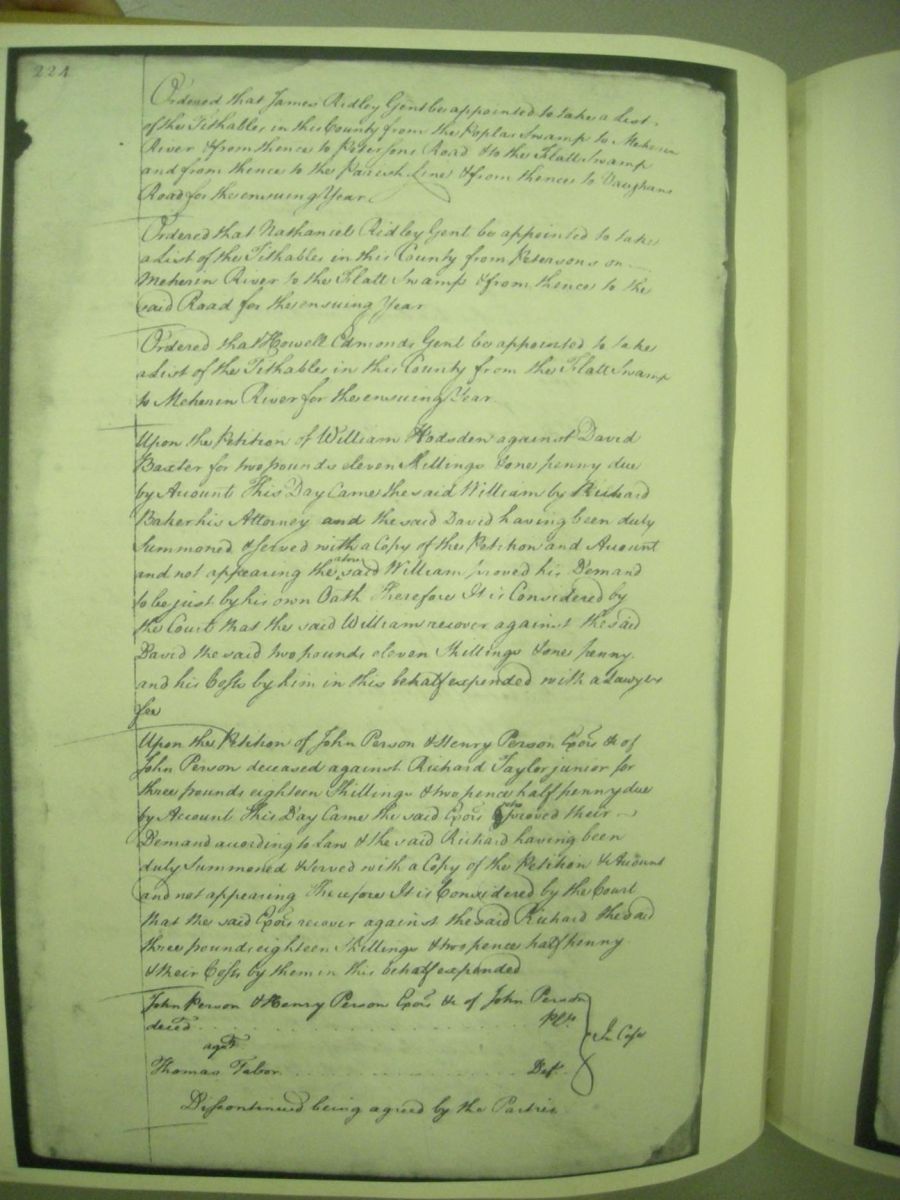 224
Ordered that James Ridley Gent be appointed to take a List
of the Tithables in this County from the Poplar Swamp to Meherin
River & from thence to Petersons Road & to the Flatt Swamp
and from thence to the Parish Line & from thence to Vaughans
Road for the ensuing Year.
Ordered that Nathaniel Ridley Gent be appointed to take
a List of the Tithables in this County from Petersons on
Meherin River to the Flatt Swamp & from thence to the
said Road for the ensuing Year
Ordered that Howell Edmonds Gent be appointed to take
a List of the Tithables in this County from the Flatt Swamp
to Meherin River for the ensuing Year.
Upon the Petition of William Hodsden against David
Baxter for two pounds eleven Shillings & one penny due
by Account This Day Came the said William by Richard
Baker his Attorney and the said David having been duly
Summoned & served with a Copy of the Petition and Account
and not appearing the said William proved his Demand
to be just by his own Oath Therefore It is Considered by
the Court that the said William recover against the said
David the said two pounds eleven Shillings & one penny
and his Costs by him in this behalf expended with a Lawyers
fee
Upon the Petition of John Person & Henry Person Exors &c of
John Person deceased against Richard Taylor junior for
three pounds eighteen Shillings & two pence half penny due
by Account This Day Came the said Exors who proved their
Demand according to Law & the said Richard having been
duly Summoned & served with a Copy of the Petition & Account
and not appearing Therefore It is Considered by the Court
that the said Exors recover against the said Richard the said
three pounds eighteen Shillings & two pence half penny
& their Costs by them in this behalf expended
John Person & Henry Person Exors &c of John Person
deced . . . . . . . . . . Plts.
agst In Case
Thomas Tabor . . . . . . . . . . Deft.
Discontinued being agreed by the Parties